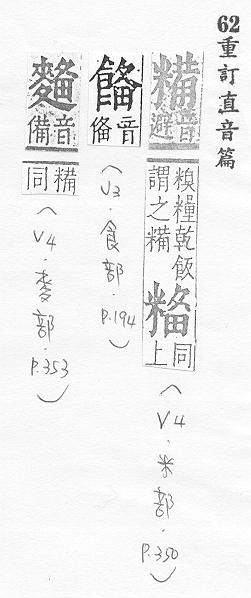 62重訂直音篇
糒
音避
糗糧乾飯謂之糒
同上
(V4·米部·P.350)
音俻
(V3·食部·P.194)
音備
糒同
(V4·麥部·P.353)